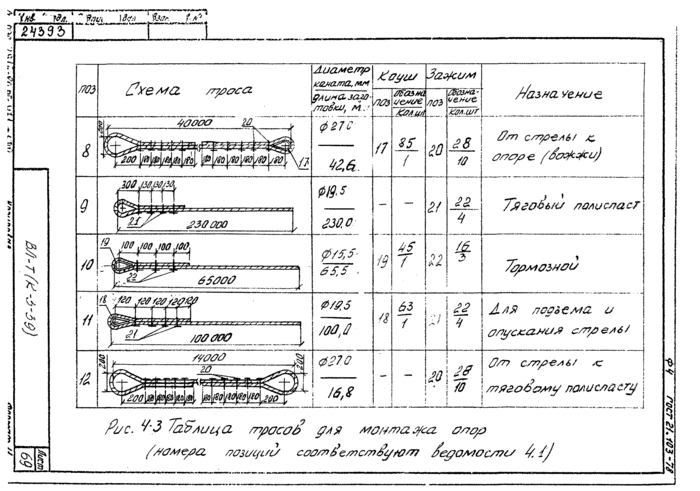 24393
поз
Схема троса
Диаметр каната, мм
длина заготовки, м.
Коуш
поз
обозначение
кол.шт
Зажим
поз
обозначение
кол.шт
Назначение
8
40000
20
200
200 180 180 180 180 180 180 180 180 180 180 200
17
ф27.0
42,6
17
85
1
20
28
10
От стрелы к
опоре (вожжи)
9
300 130 130 130
21
230 000
ф19.5
230,0
– –
21
22
4
Тяговый полиспаст
10
19
100 100 100 100
22
65000
ф15,5
65,5
19
45
1
22
16
3
Тормозной
11
18
120 120 120 120 120
21
100 000
ф19,5
100,0
18
63
1
21
22
4
Для подъема и
опускания стрелы
12
14000
20
200
200
200 180 180 180 180 180 180 180 180 200
ф27.0
16,8
– –
20
28
10
От стрелы к
тяговому полиспасту
Рис. 4.3 Таблица тросов для монтажа опор
(номера позиций соответствуют ведомости 4.1)
ВЛ-Т(К-5-39)
Лист
69
ф4 ГОСТ 21.103-78